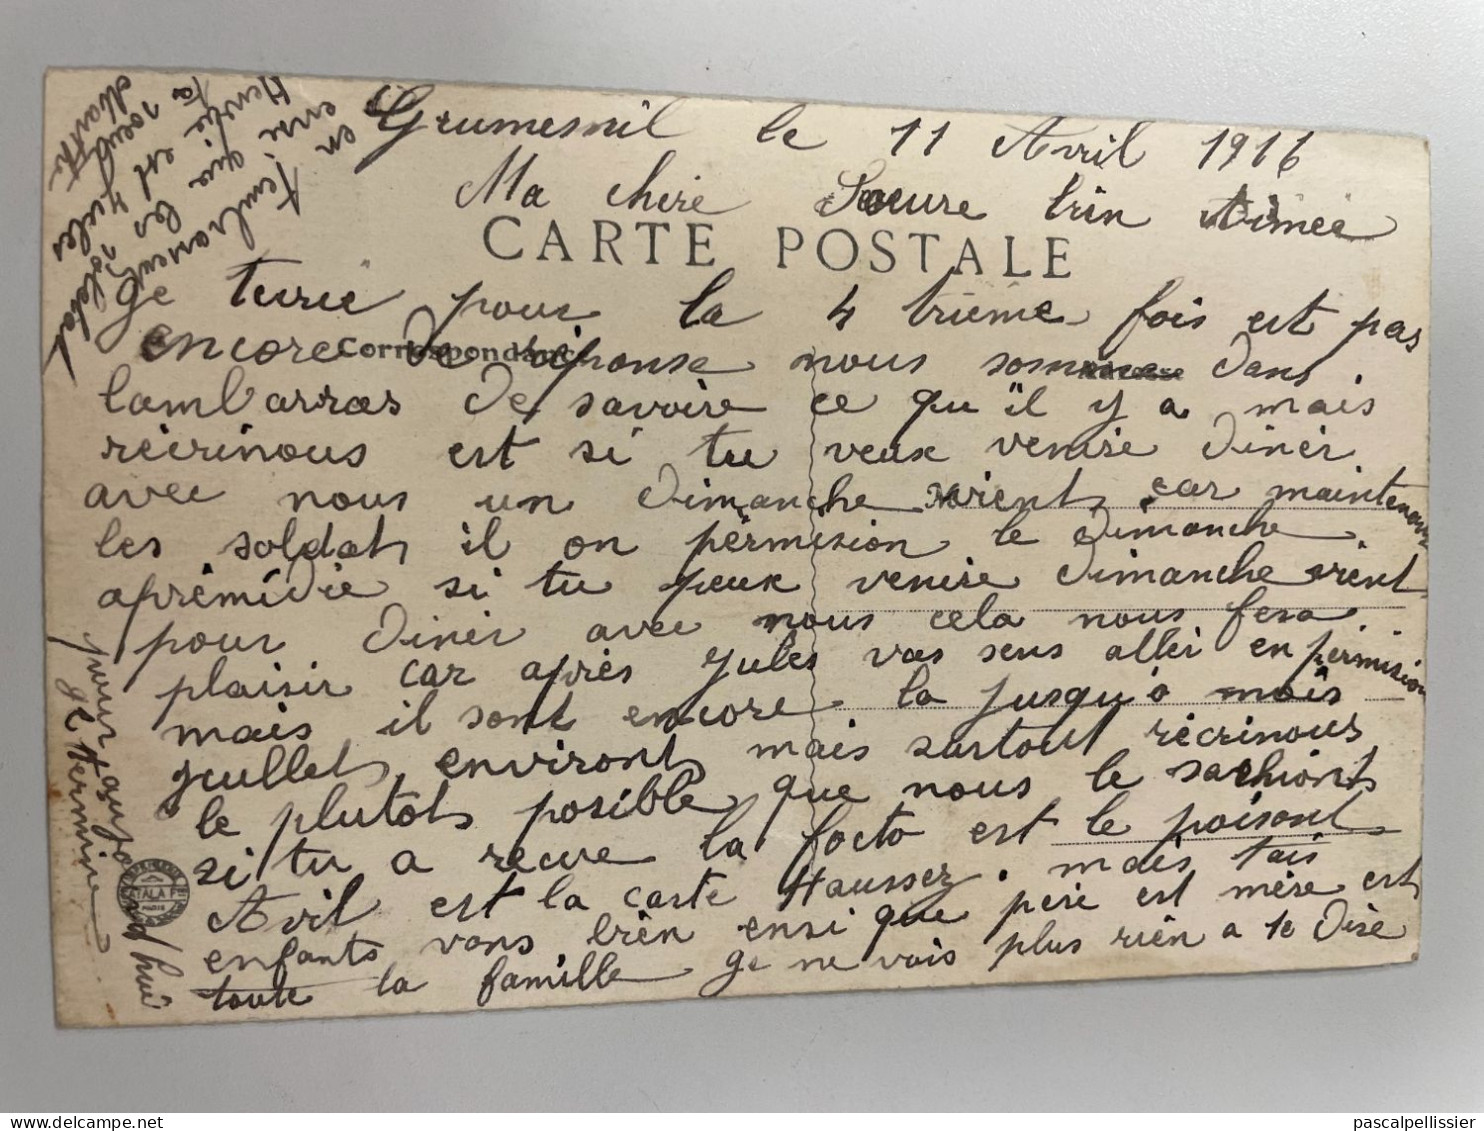 Grumesnil le 11 Avril 1916
Ma chere Soeure bien Aimée
CARTE POSTALE
ge tecrie pour la 4 trième fois est pas
encore de réponse nous somme dans
Correspondance
lambarras de savoire ce qu'il y a mais
récrinous est si tu veux venire diner
avec nous un dimanche vient car maintenant
les soldats il on pérmision le dimanche
aprémidie si tu peux venire dimanche vient
pour diner avec nous cela nous fera
plaisir car après jules vas sens allér en pérmision
mais il sont encore la jusqu'à mois
juillet environt mais surtout récrinous
le plutôt posible que nous le sachions
si tu a recue la focto est le poisont
Avril est la carte Haussez. mais tais
enfants vons bien ensi que pere est mère est
toute la famille ge ne vois plus rien a te dire
pour aujourd'hui
ge termine
en
tembrasent
ensi que les
Henrie est jules
ta soeur
Marthe
IMPRIMERIE
CATALA F
PARIS
pascalpellissier